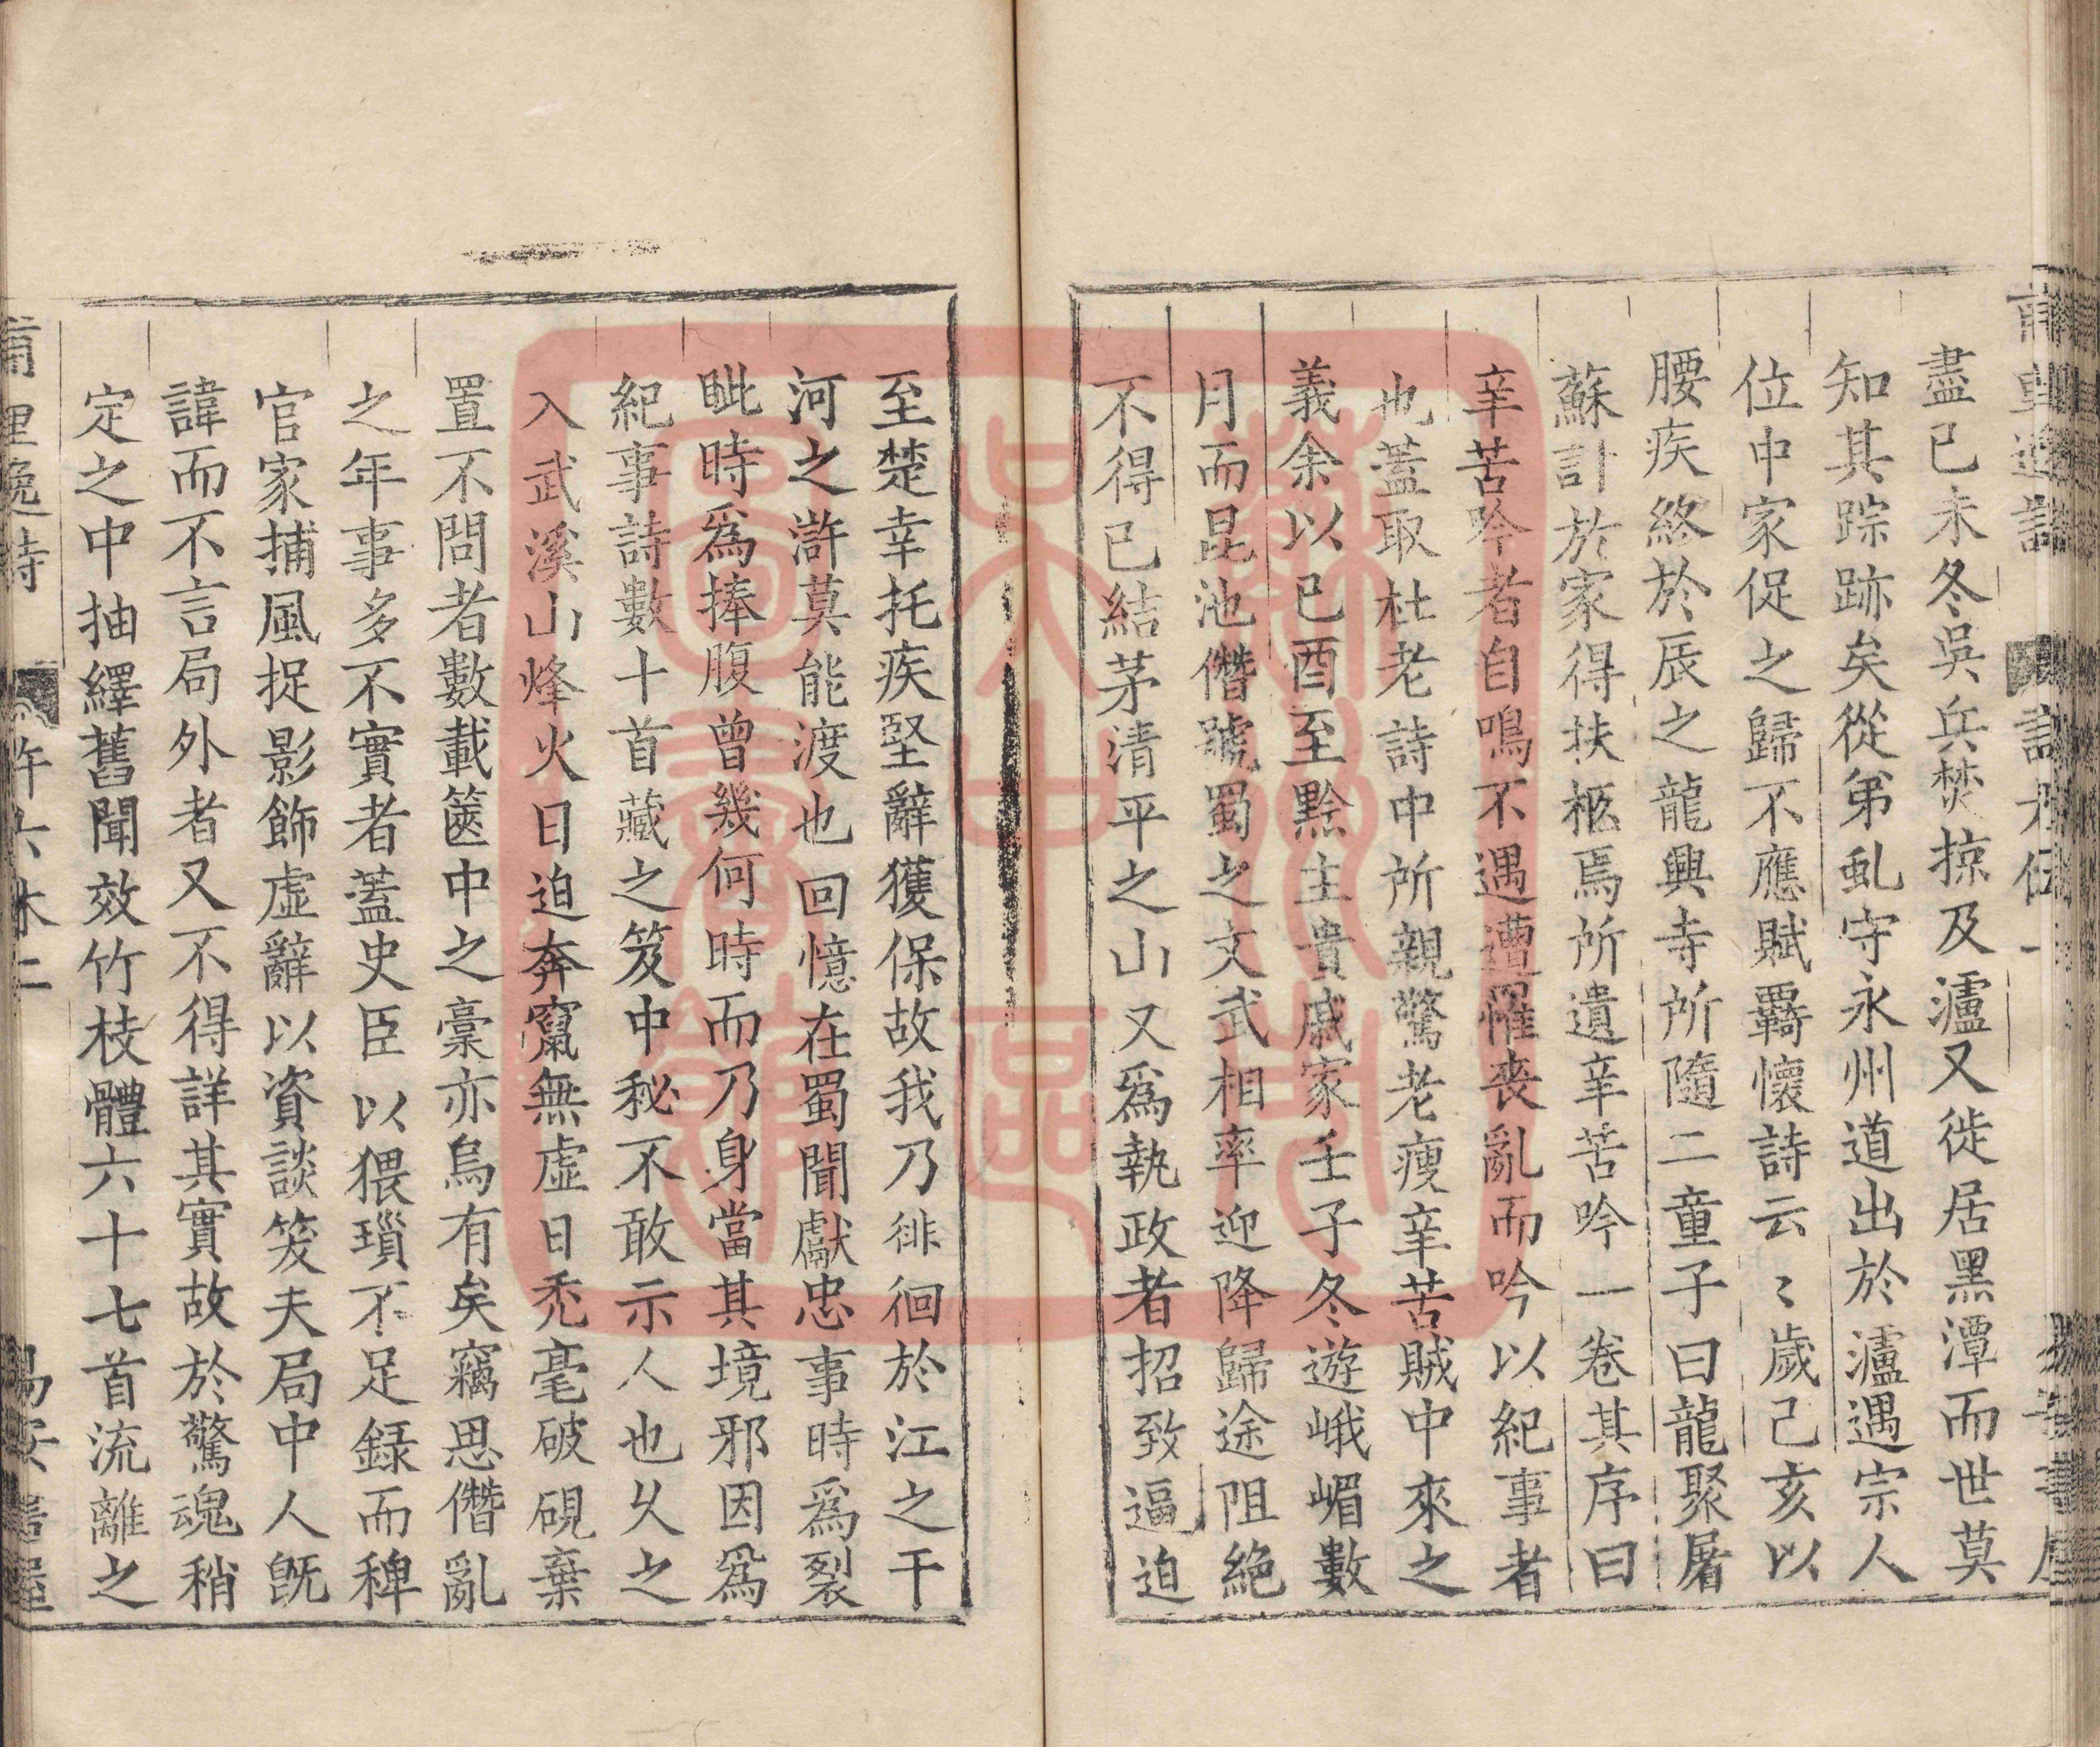 盡已未冬吳兵焚掠及瀘又徙居黑潭而世莫
知其踪跡矣從弟虬守永州道出於瀘遇宗人
位中家促之歸不應賦羇懷詩云〻歲己亥以
腰疾終於辰之龍興寺所隨二童子曰龍聚屠
蘇訃於家得扶柩焉所遺辛苦吟一卷其序曰
辛苦吟者自鳴不遇遭罹喪亂而吟以紀事者
也蓋取杜老詩中所親驚老瘦辛苦賊中來之
義余以己酉至黔主貴戚家壬子冬遊峨嵋數
月而昆池僭號蜀之文武相率迎降歸途阻絕
不得已結茅清平之山又爲執政者招致逼迫
至楚幸托疾堅辭獲保故我乃徘徊於江之干
河之滸莫能渡也回憶在蜀聞獻忠事時爲裂
眦時爲捧腹曾幾何時而乃身當其境邪因爲
紀事詩數十首藏之笈中秘不敢示人也乆之
入武溪山烽火日迫奔竄無虛日禿毫破硯棄
置不問者數載篋中之稾亦烏有矣竊思僭亂
之年事多不實者蓋史臣以猥瑣不足録而稗
官家捕風捉影飾虛辭以資談笑夫局中人旣
諱而不言局外者又不得詳其實故於驚魂稍
定之中抽繹舊聞效竹枝體六十七首流離之